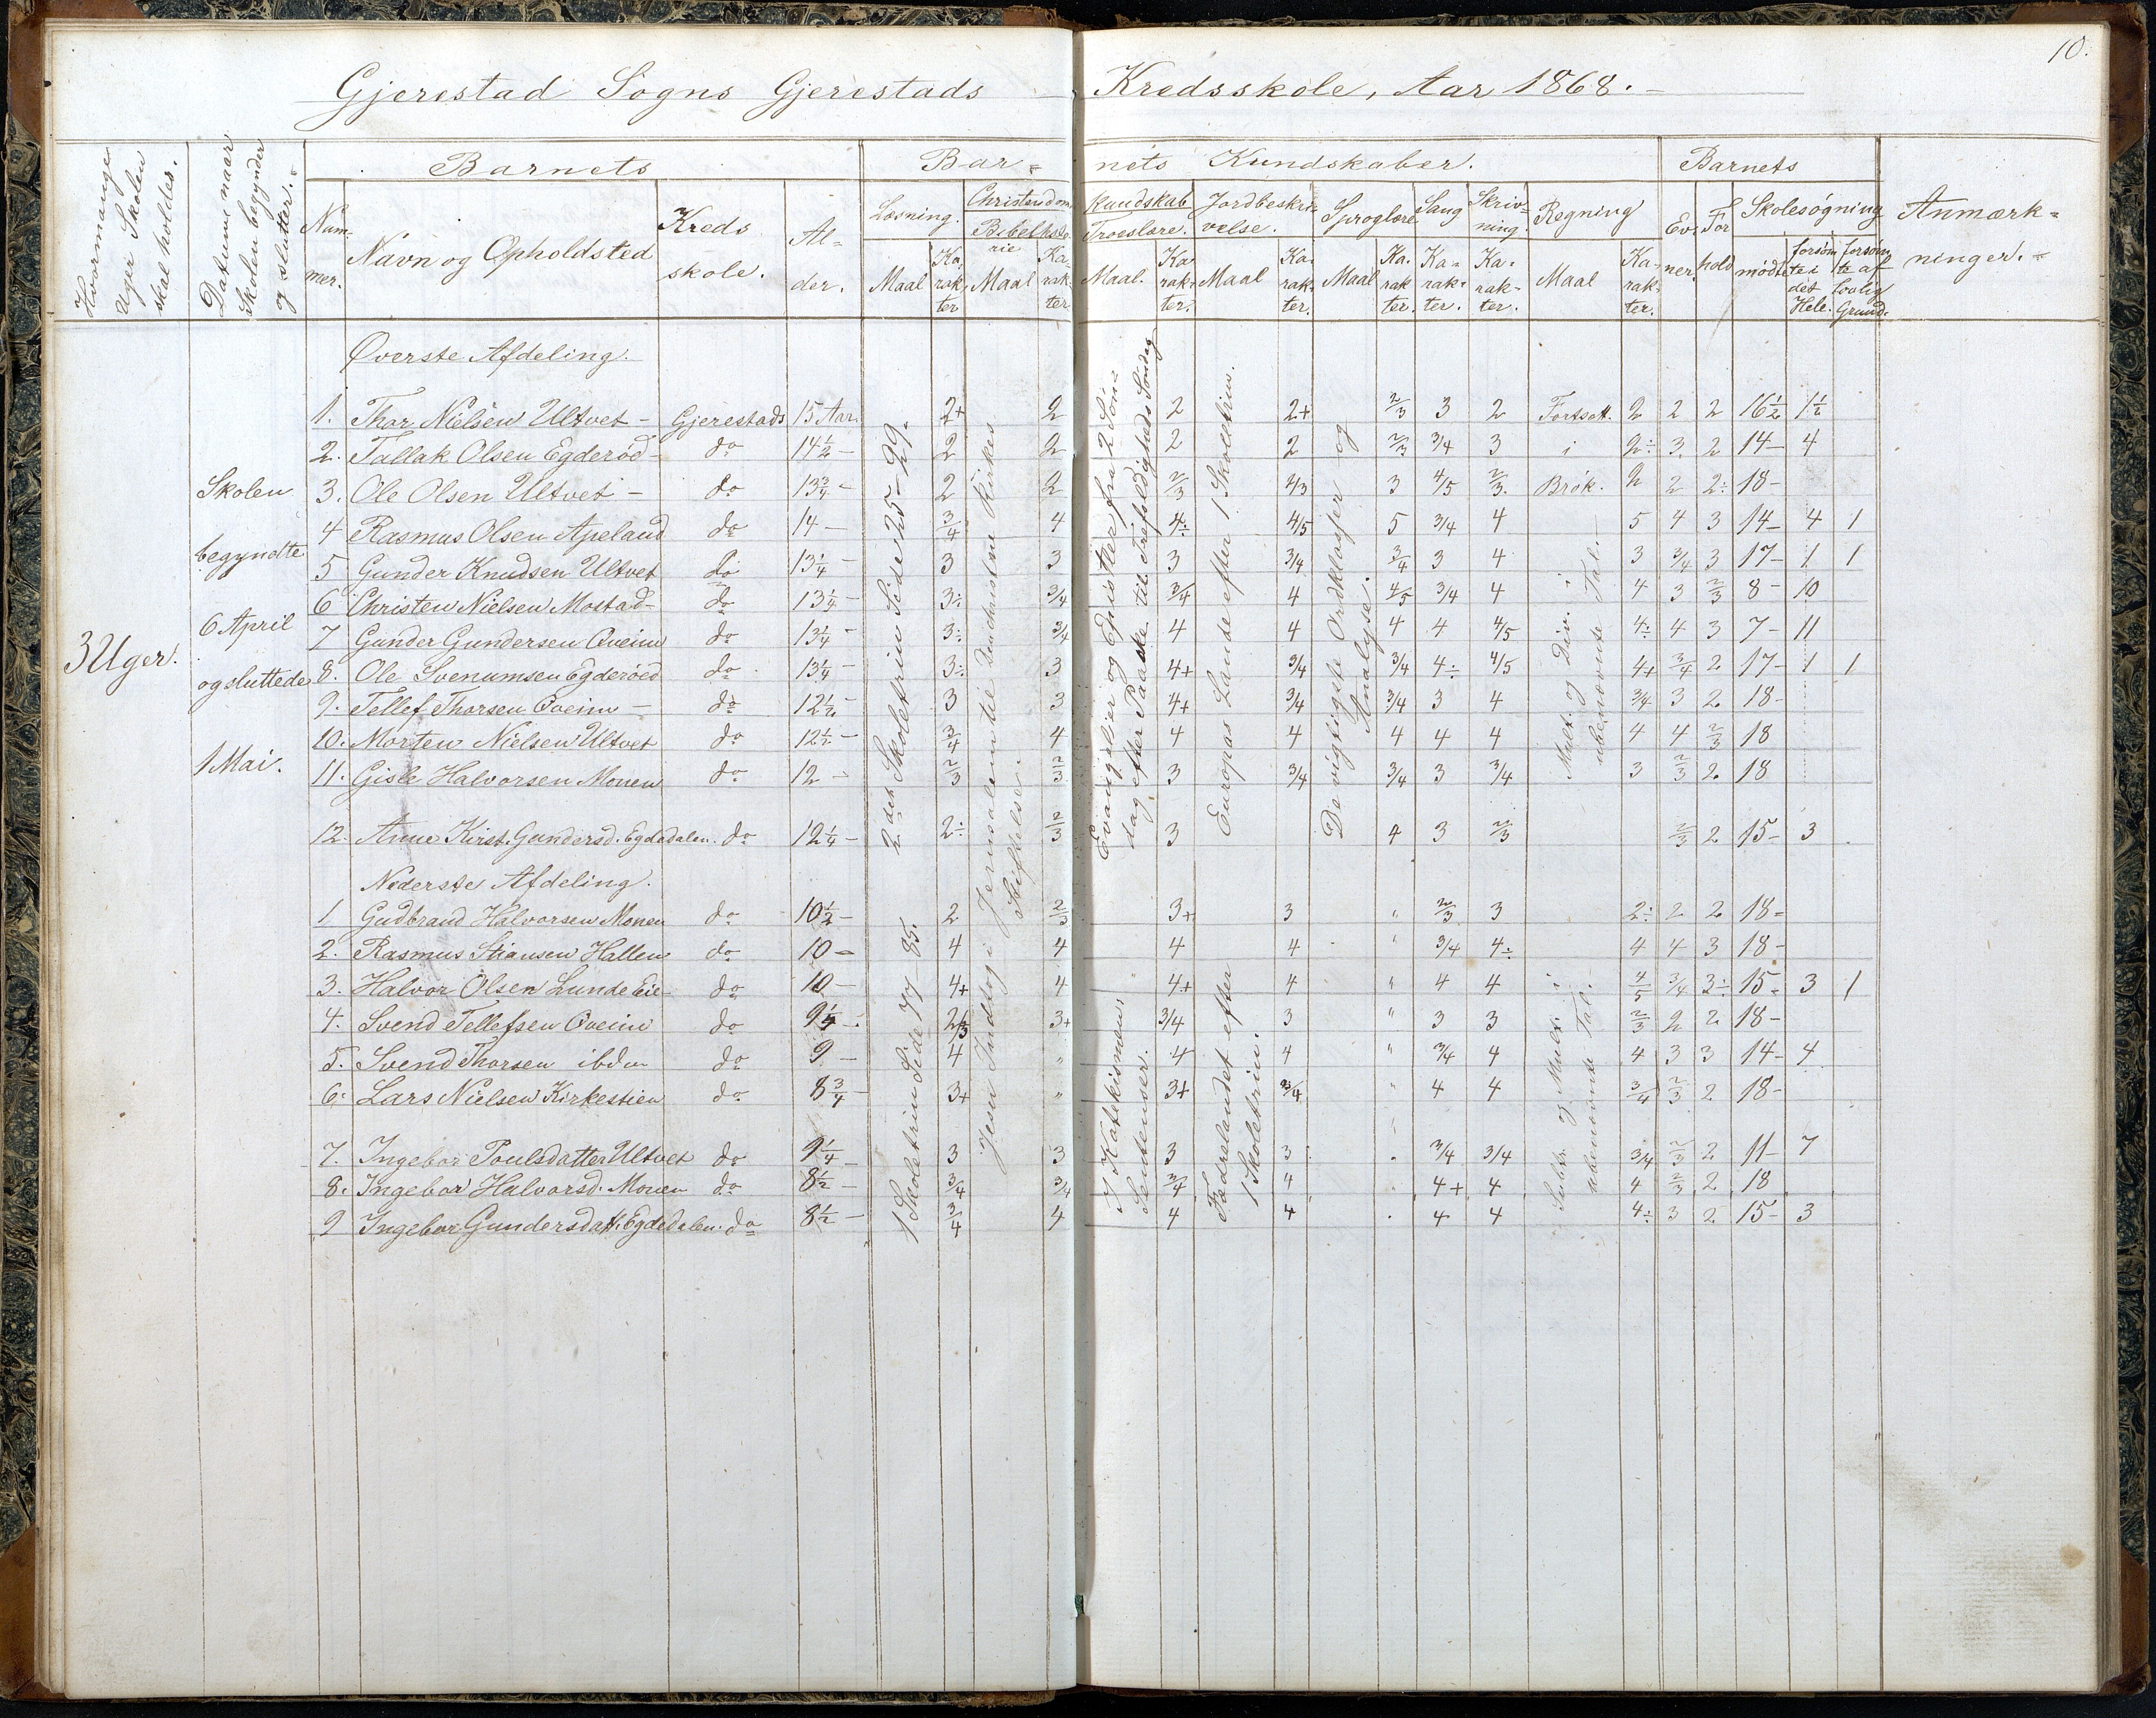 10.
Gjerestad Sogns Gjerestads Kredsskole, Aar 1868.
Hvormange Uger Skolen skal holdes.
Datum naar Skolen begynder og slutter.
Barnets
Bar= nets Kundskaber.
Barnets
Anmærk= ninger.
Num- mer.
Navn og Opholdsted
Kreds skole.
Al= der.
Læsning.
Christendoms Kundskab
Bibelhisto- rie
Troeslære.
Jordbeskri- velse.
Sproglære
Sang
Skriv- ning.
Regning
Ev- ner.
For hold
Skolesøgning
Maal Ka- rak- ter Maal Ka- rak- ter Maal. Ka rak- ter. Maal Ka- rak- ter. Maal Ka- rak ter. Ka- rak- ter. Ka- rak- ter. Maal Ka- rak- ter. mødte forsøm te i det Hele. forsøm te af lovlig Grund.
3 Uger.
Skolen
begyndte
6 April
og sluttede
1 Mai.
Øverste Afdeling.
1. Thor Nielsen Ultvet - Gjerestads 15 Aar 2+ 2 2 2+ 2/3 3 2 Fortsatt. 2 2 2 16½ 1½
2. Tallak Olsen Egderød - do 14½ - 2 2 2 2 2/3 3/4 3 i 2÷ 3. 2 14- 4
3. Ole Olsen Ultvet - do 13¾ - 2 2 2/3 4/3 3 4/5 2/3. Brøk. 2 2 2÷ 18-
4 Rasmus Olsen Apeland do 14 - 3/4 4 4÷ 4/5 5 3/4 4 5 4 3 14- 4 1
5 Gunder Knudsen Ultvet do 13¼ - 3 3 3 3/4 3/4 3 4 3 3/4 3 17- 1 1
6 Christen Nielsen Mostad - do 13¼ - 3÷ 3/4 3/4 4 4/5 3/4 4 4 3 2/3 8- 10
7 Gunder Gundersen Qveim do 13¼ - 3÷ 3/4 4 4 4 4 4/5 4÷ 4 3 7- 11
8. Ole Svenumsen Egderöed do 13¼ - 3÷ 3 4+ 3/4 3/4 4÷ 4/5 4+ 3/4 2 17- 1 1
9. Tellef Thorsen Qveim - do 12½ - 3 3 4+ 3/4 3/4 3 4 3/4 3 2. 18-
10. Morten Nielsen Ultvet do 12½ - 3/4 4 4 4 4 4 4 4 4 2/3 18
11. Gisle Halvorsen Monen do 12 - 2/3 2/3 3 3/4 3/4 3 3/4 3 2/3 2. 18
12. Anne Kirst. Gundersd. Egdedalen. do 12¼ - 2÷ 2/3 3 4 3 2/3 2/3 2 15- 3
2det Skoletrin Side 25-29.
Jesu Indtog i Jerusalem til den christne Kirkes Stiftelse.
Evangelier og Epistler fra 2 Søn- dag efter Paaske til Trefoldigheds Søndag
Europas Lande efter 1 Skoletrin.
De vigtigste Ordklasser og Analyse.
Mult. og Div. i ubenævnte Tal.
Nederste Afdeling.
1 Gudbrand Halvorsen Monen do 10½ - 2 2/3 3+ 3 " 2/3 3 2÷ 2 2 18-
2. Rasmus Stiansen Hallen do 10 - 4 4 4 4 " 3/4 4÷ 4 4 3 18-
3. Halvor Olsen Lunde Eie do 10 - 4+ 4 4+ 4 " 4 4 4/5 3/4 3÷ 15- 3 1
4. Svend Tellefsen Qveim do 9¼ - 2/3 3+ 3/4 3 " 3 3 2/3 2 2 18-
5. Svend Thorsen ibdm do 9 - 4 " 4 4 " 3/4 4 4 3 3 14- 4
6. Lars Nielsen Kirkestien do 8¾ - 3+ " 3+ 3/4 " 4 4 3/4 2/3 2 18-
7. Ingebor Poulsdatter Ultvet do 9¼ - 3 3 3 3 3/4 3/4 3/4 2/3 2 11- 7
8. Ingebor Halvorsd. Monen do 8½ - 3/4 3/4 3/4 4 4+ 4 4 2/3 2 18
9 Ingebor Gundersdatt. Egdedalen. do 8½ - 3/4 4 4 4 4 4 4÷ 3 2 15- 3
1 Skoletrin Side 77 85.
I Katekismen Sentenser.
Fædrelandet efter 1 Skoletrin.
Subtr. og Mult. i ubenævnte Tal.